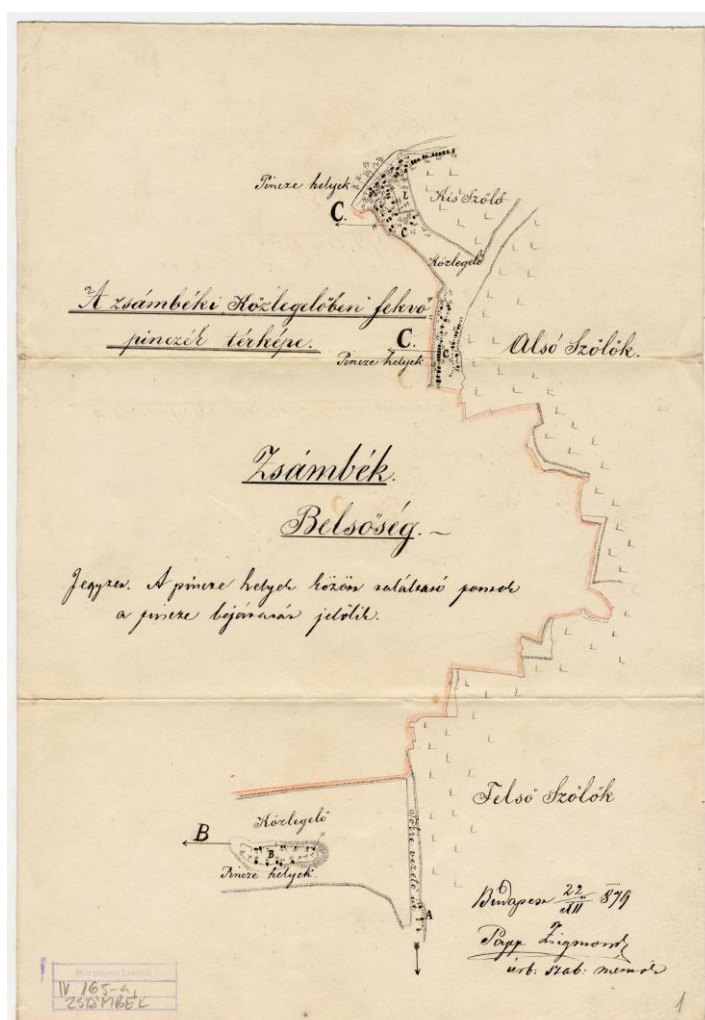 Pincze helyek
C.
Kis Szőlő
C
Közlegelő
A zsámbéki "Közlegelőben" fekvő
pinczék térképe.
C.
Pincze helyek
C
Alsó Szőlők.
Zsámbék.
Belsőség. ~
Jegyzet. A pincze helyek között található pontok
a pincze bejáratát jelölik.
Felső Szőlők
Közlegelő
B
B
Pincze helyek
vezető út
A
Budapest 22/XII 879
Papp Zsigmond
urb: szab: mérnök
Pest megyei Levéltár
IV. 165-a,
ZSÁMBÉK
1